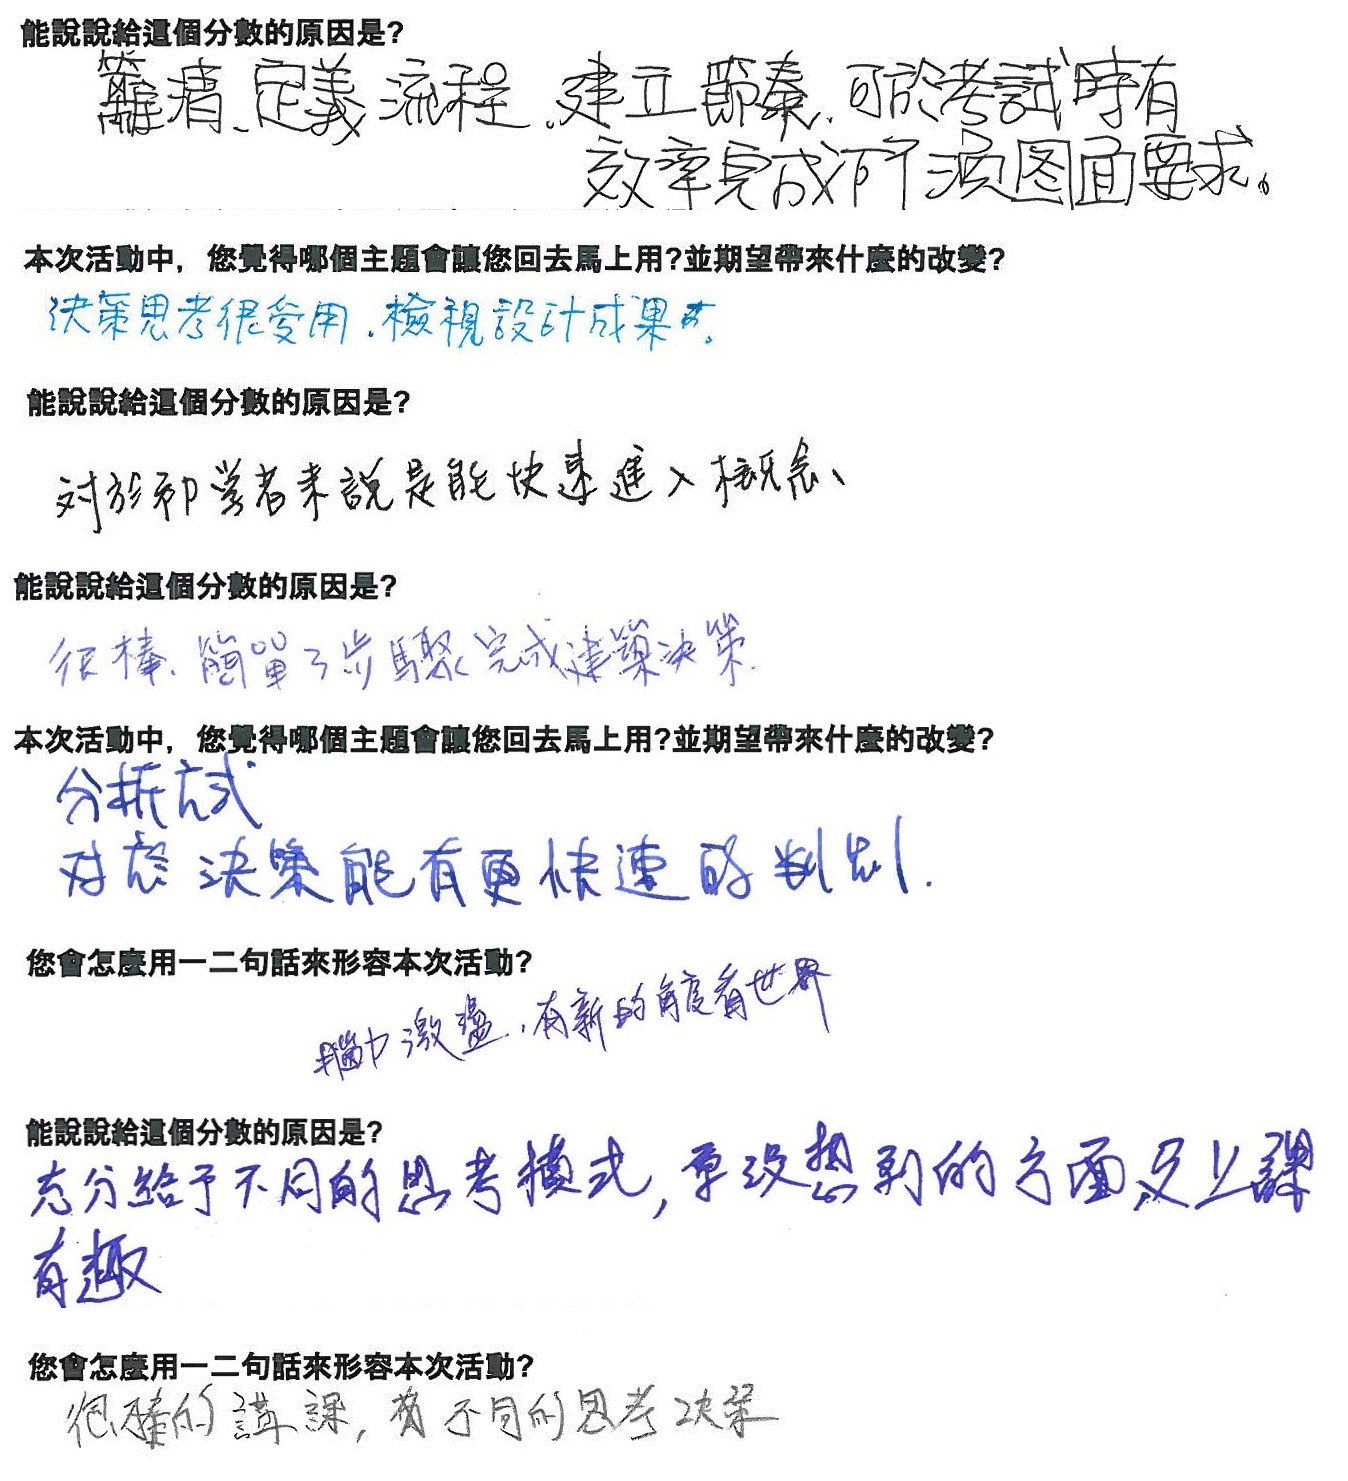 能說說給這個分數的原因是?
釐清、定義流程、建立節奏,可於考試時有
效率完成所須图面要求。
本次活動中，您覺得哪個主題會讓您回去馬上用?並期望帶來什麼的改變?
決策思考很受用,檢視設計成果
能說說給這個分數的原因是?
对於初学者来說是能快速進入概念、
能說說給這個分數的原因是?
很棒、簡單了步驟完成建築決策.
本次活動中，您覺得哪個主題會讓您回去馬上用?並期望帶來什麼的改變?
分析方式
对於決策能有更快速的判别.
您會怎麼用一二句話來形容本次活動?
腦力激盪,有新的角度看世界
能說說給這個分數的原因是?
充分給予不同的思考模式,原沒想到的方面,及上課
有趣
您會怎麼用一二句話來形容本次活動?
很棒的講課,有不同的思考決策